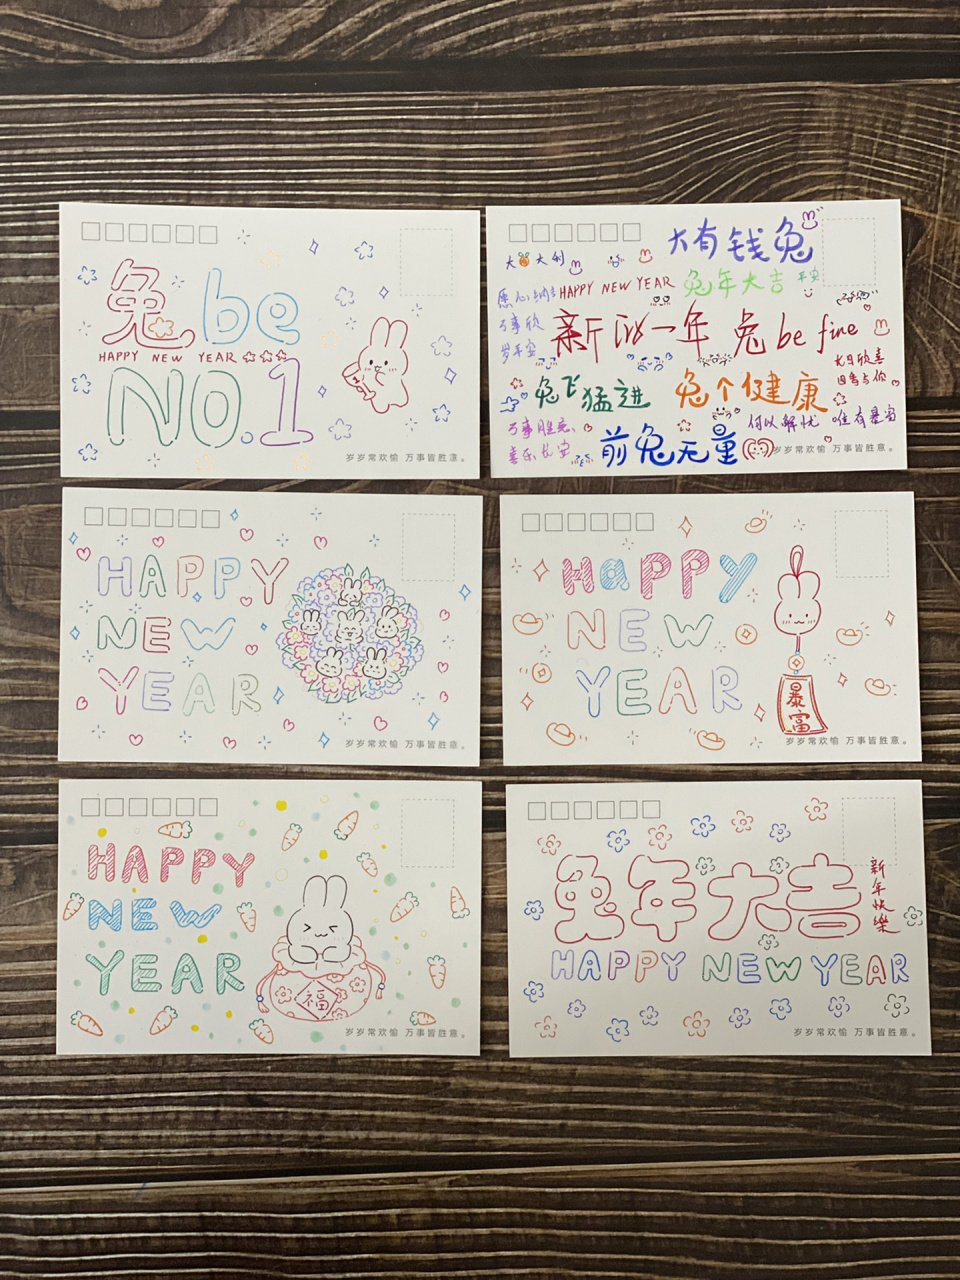 兔be
HAPPY NEW YEAR
NO.1
岁岁常欢愉 万事皆胜意。
大有钱兔
大 大利
HAPPY NEW YEAR
兔年大吉
平安
新的一年 兔 be fine
兔飞猛进
兔个健康
万事胜意、
喜乐长安
前兔无量
何以解忧 唯有暴富
岁岁常欢愉 万事皆胜意。
HAPPY
NEW
YEAR
岁岁常欢愉 万事皆胜意。
Happy
NEW
YEAR
暴富
岁岁常欢愉 万事皆胜意。
HAPPY
NEW
YEAR
福
岁岁常欢愉 万事皆胜意。
兔年大吉
新年快樂
HAPPY NEW YEAR
岁岁常欢愉 万事皆胜意。